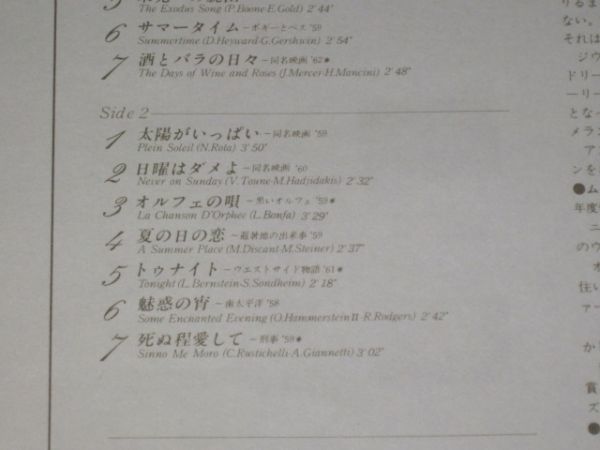 The Exodus Song (P.Boone·E.Gold) 2′44″
6 サマータイム～ポギーとベス '59
Summertime (D.Heyward·G.Gershwin) 2′54″
7 酒とバラの日々～同名映画 '62●
The Days of Wine and Roses (J.Mercer·H.Mancini) 2′48″
Side 2
1 太陽がいっぱい～同名映画 '59
Plein Soleil (N.Rota) 3′50″
2 日曜はダメよ～同名映画 '60
Never on Sunday (V.Toune·M.Hadjidakis) 2′32″
3 オルフェの唄～黒いオルフェ '59●
La Chanson D'Orphee (L.Bonfa) 3′29″
4 夏の日の恋～避暑地の出来事 '59
A Summer Place (M.Discant·M.Steiner) 2′37″
5 トゥナイト～ウエストサイド物語 '61●
Tonight (L.Bernstein·S.Sondheim) 2′18″
6 魅惑の宵～南太平洋 '58
Some Enchanted Evening (O.HammersteinⅡ·R.Rodgers) 2′42″
7 死ぬ程愛して～刑事 '59●
Sinno Me Moro (C.Rustichelli·A.Giannetti) 3′02″
ない。
それは
ジウ
ドリー
ーリー
となっ
メラン
ア
ンを
●ム
年度
ニ
のウ
オ
住い
ァー
か
賞
ズ
●